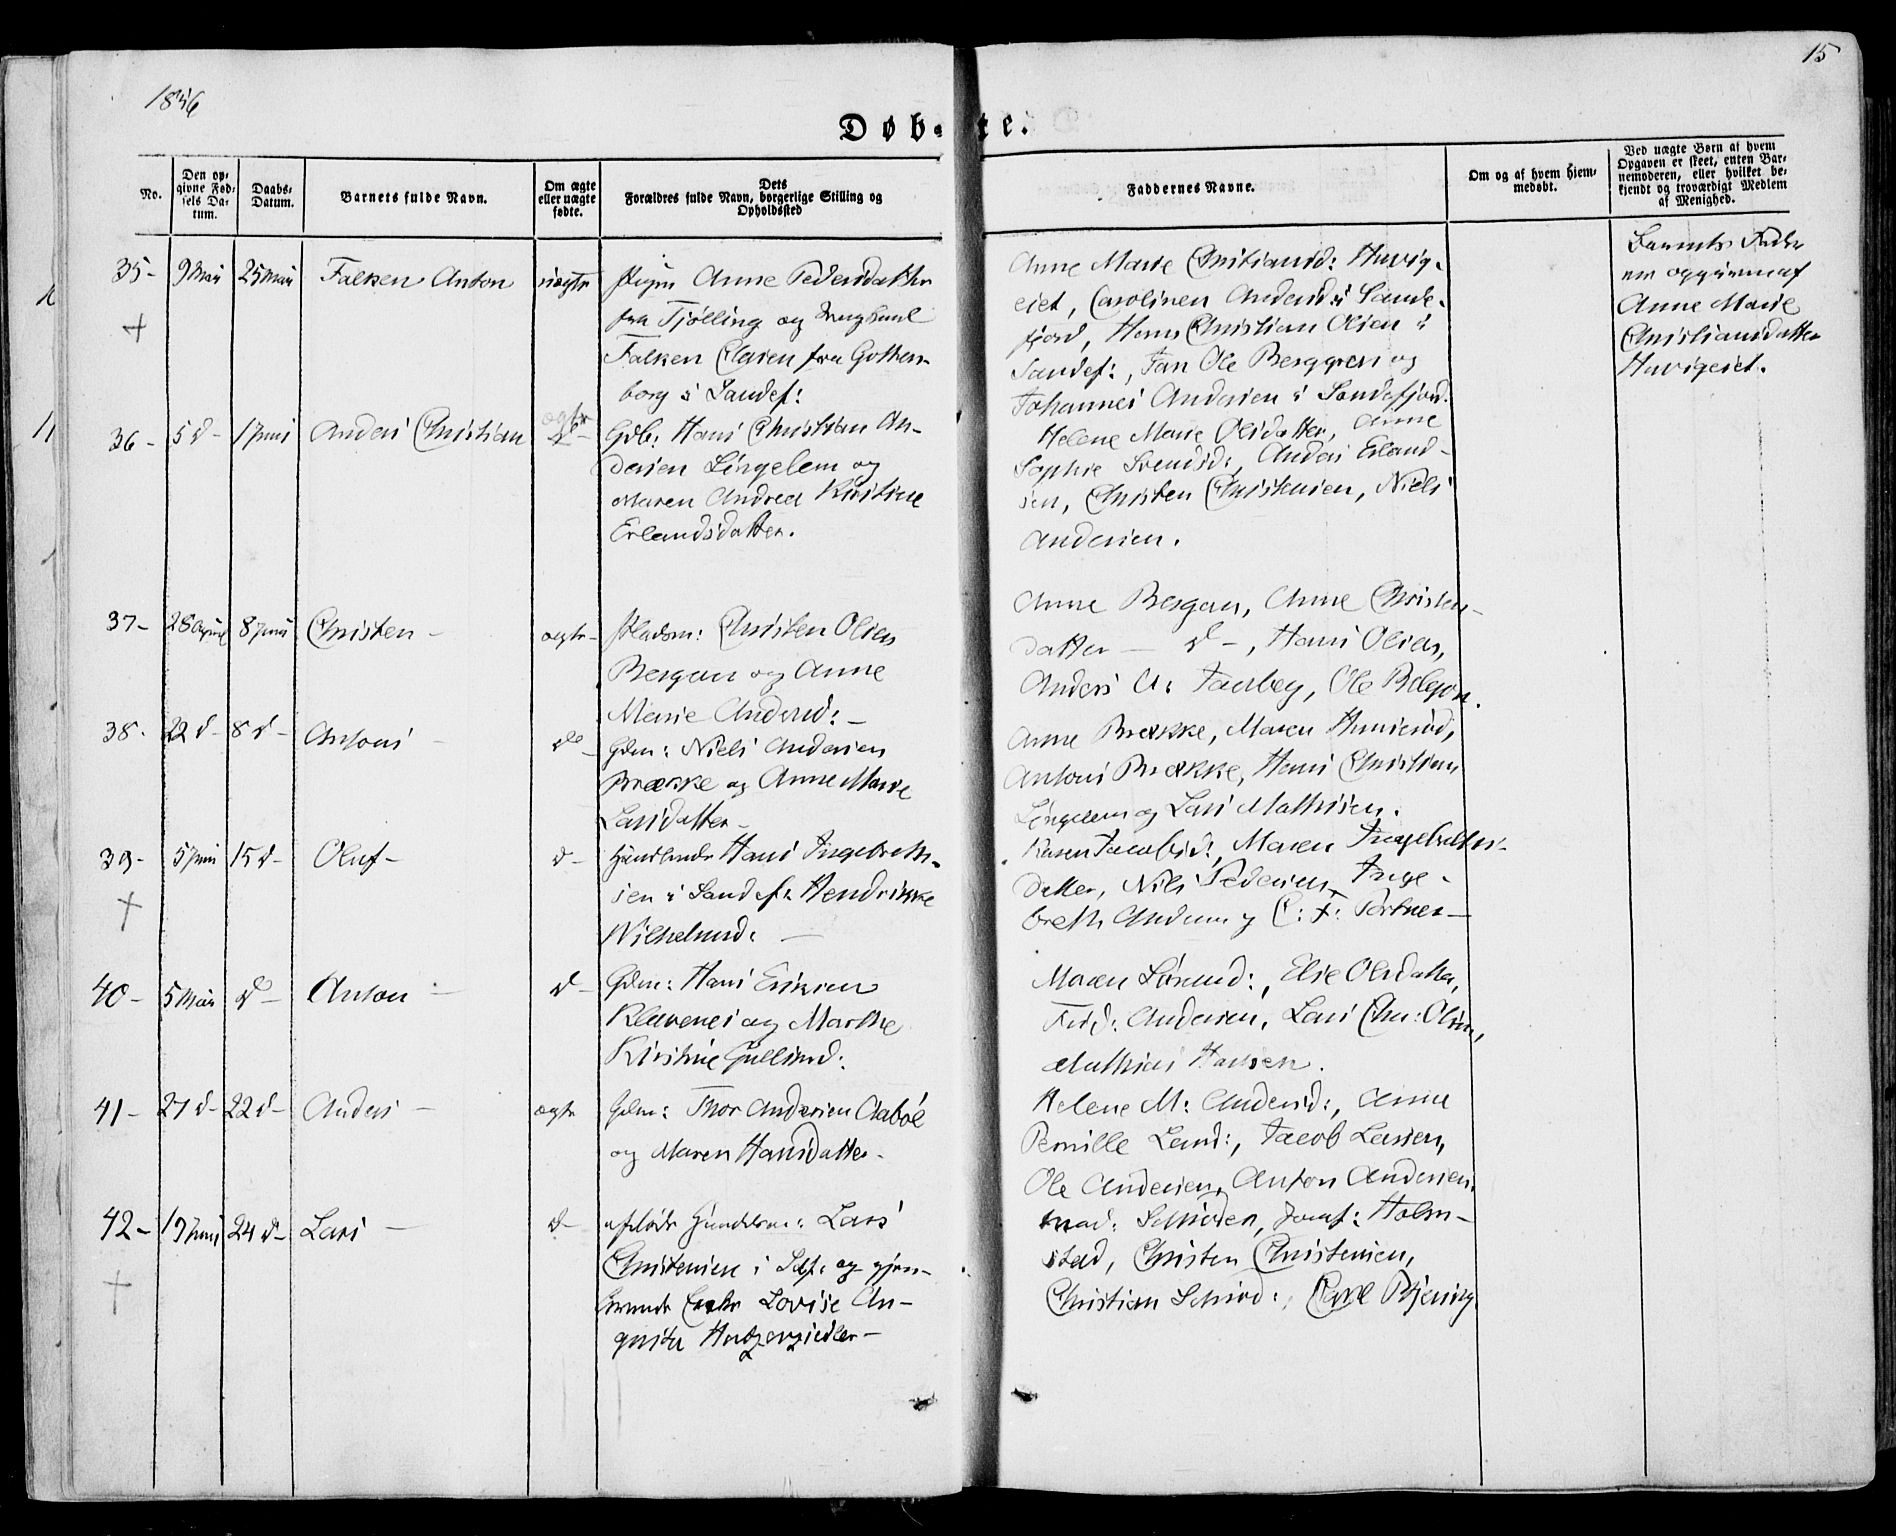 1846
15
Døb-te.
No.
Den op-
givne Fød-
sels Da-
tum.
Daabs-
Datum.
Barnets fulde Navn.
Om ægte
eller uægte
fødte.
Dets
Forældres fulde Navn, borgerlige Stilling og
Opholdssted
Faddernes Navne.
Om og af hvem hjem-
medøbt.
Ved uægte Børn af hvem
Opgaven er skeet, enten Bar-
nemoderen, eller hvilket be-
kjendt og troværdigt Medlem
af Menighed.
35- 9 Mai 25 Mai Falken Anton uægte Pigen Anne Pedersdatter
fra Tjølling og Ungkarl
Falken Clasen fra Gothen-
borg i Sandef:
Anne Marie Christiansd: Huvig-
eiet, Carolinen Andersd: i Sande-
fjord, Hans Christian Olsen i
Sandef:, Jan Ole Berggren og
Johannes Andersen i Sandefjord.
Barnets Fader
er opgiven af
Anne Marie
Christiansdatter
Huvigeiet.
36- 5 d- 1 Juni Anders Christian ægte d- Gdb: Hans Christian An-
dersen Lingelem og
Maren Andrea Kirstine
Erlandsdatter.
Helene Marie Olsdatter, Anne
Sophie Svendsd:, Anders Erland-
sen, Christen Christensen, Niels
Andersen.
37- 28 April 8 Juni Christen - ægte- Pladsm: Christen Olsen
Bergan og Anne
Marie Andersd: -
Anne Bergan, Anne Christen-
datter - d -, Hans Olsen,
Anders A: Fauby, Ole
38- 22 d- 8 d- Antoni - do- Gdm: Niels Andersen
Brække og Anne Marie
Larsdatter -
Anne Brække, Maren
Antoni Brække, Hans Christian
Lingelem og Lars Mathisen.
39- 5 Juni 15 d- Oluf- d- Hans Ingebreth-
sen i Sandef: Hendrikke
Wilhelmsd: -
Karen Jacobsd:, Maren Ingebreths-
datter, Nils Pedersen, Inge-
breth Andersen og C: F:
40- 5 Mai do- Anton - d- Gdm: Hans Eriksen
Klavenes og Marthe
Kirstine Gullisd:
Maren Sørensd:, Elie Olsdatter,
Fred: Andersen, Lars Chr: Olsen,
Mathias Hansen.
41- 27 d- 22 d- Anders - ægte Gdm: Thor Andersen Aabøe
og Maren Hansdatter-
Helene M: Andersd:, Anne
Pernille Larsd:, Jacob Larsen,
Ole Andersen, Anton Andersen.
42- 19 Juni 24 d- Lars - d- afdøde Handelsm: Lars
Christensen i Sdf: og gjen-
levende Enke Lovise Au-
gusta
Mad: Schrøder, Jomf: Holm-
stad, Christen Christensen,
Christian Schrød:, Carl Bjerring